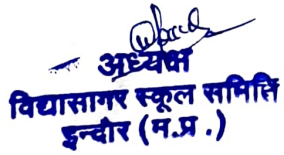 अध्यक्ष
विद्यासागर स्कूल समिति
इन्दौर (म.प्र.)